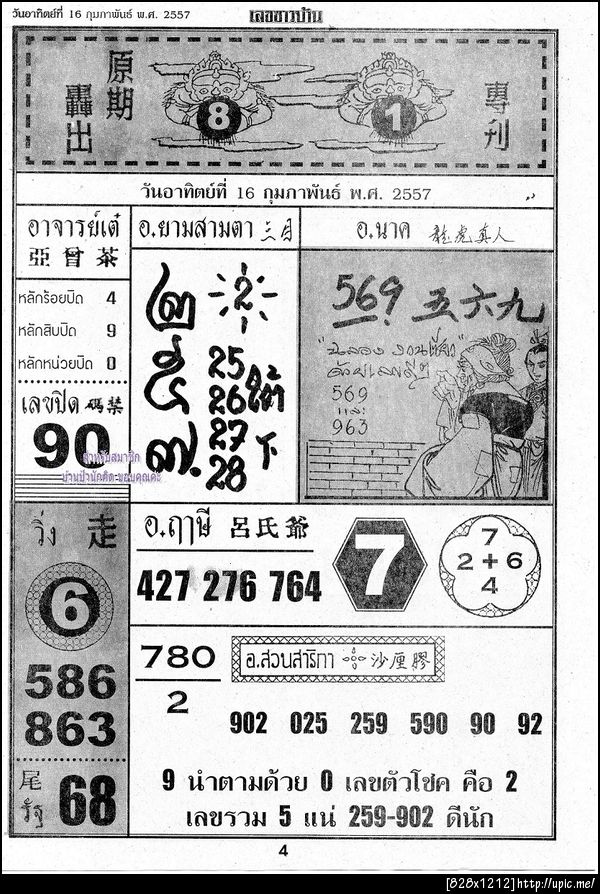 วันอาทิตย์ที่ 16 กุมภาพันธ์ พ.ศ. 2557
เลขชาวบ้าน
原期
轟出
8
1
專刊
วันอาทิตย์ที่ 16 กุมภาพันธ์ พ.ศ. 2557
อาจารย์เต๋
亞曾茶
หลักร้อยปิด 4
หลักสิบปิด 9
หลักหน่วยปิด 0
เลขปิด 碼禁
90
สำหรับสมาชิก
อ.ยามสามตา 三目
๒
2
๕
25
26 ใต้
๗.
27 下
28
อ.นาค 龍虎真人
569 五六九
569
และ
963
วิ่ง 走
6
586
863
尾
รัฐ
68
อ.ฤาษี 呂氏爺
427 276 764
7
7
2+6
4
780
2
อ.สวนสาริกา 沙厘膠
902 025 259 590 90 92
9 นำตามด้วย 0 เลขตัวโชค คือ 2
เลขรวม 5 แน่ 259-902 ดีนัก
4
[828x1212]http://upic.me/